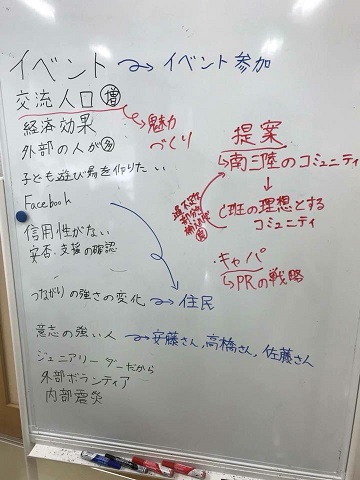 イベント → イベント参加
交流人口 増
経済効果
魅力
づくり
外部の人が 多
子ども遊び場を作りたい
Facebook
信用性がない
安否・支援の確認
つながりの強さの変化 → 住民
意志の強い人 → 安藤さん,高橋さん,佐藤さん
ジュニアリーダーだから
外部ボランティア
内部震災
提案
南三陸のコミュニティ
↓
C班の理想とする
コミュニティ
・キャパ
PRの戦略